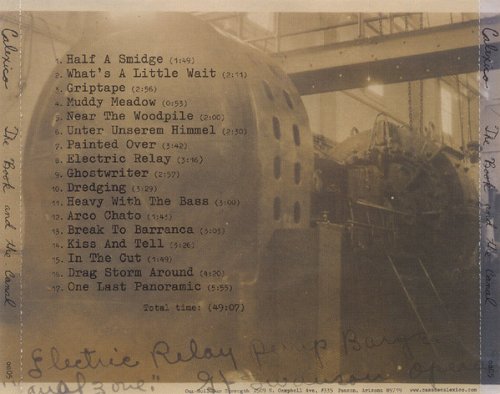 Calexico
The Book and the Canal
0805
1. Half A Smidge (1:49)
2. What's A Little Wait (2:11)
3. Griptape (2:56)
4. Muddy Meadow (0:53)
5. Near The Woodpile (2:00)
6. Unter Unserem Himmel (2:30)
7. Painted Over (3:42)
8. Electric Relay (3:16)
9. Ghostwriter (2:57)
10. Dredging (3:29)
11. Heavy With The Bass (3:00)
12. Arco Chato (1:43)
13. Break To Barranca (3:03)
14. Kiss And Tell (3:26)
15. In The Cut (1:49)
16. Drag Storm Around (4:20)
17. One Last Panoramic (5:55)
Total time: (49:07)
Electric Relay pump Barge
Canal zone."
Campbell Ave. #335 Arizona 85719 www.casadecalexico.com
Calexico
The Book and the Canal
0805